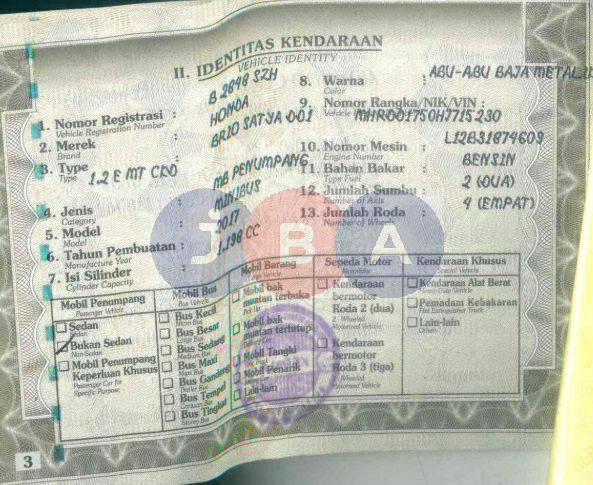 II. IDENTITAS KENDARAAN
VEHICLE IDENTITY
1. Nomor Registrasi : B 2898 SZH
Vehicle Registration Number
2. Merek : HONDA
Brand
3. Type : BRIO SATYA DD1
Type
1.2 E MT CKD
4. Jenis : MB PENUMPANG
Category
5. Model : MINIBUS
Model
6. Tahun Pembuatan : 2017
Manufacture Year
7. Isi Silinder : 1.198 CC
Cylinder Capacity
8. Warna : ABU-ABU BAJA METALIK
Color
9. Nomor Rangka/NIK/VIN :
Vehicle
10. Nomor Mesin :
Engine Number
11. Bahan Bakar : BENSIN
Type Fuel
12. Jumlah Sumbu : 2 (DUA)
Number of Axis
13. Jumlah Roda : 4 (EMPAT)
Number of Wheels
JBA
Mobil Penumpang
Passenger Vehicle
Sedan
Sedan
Bukan Sedan
Non-Sedan
Mobil Penumpang
Keperluan Khusus
Passenger Car for
Specific Purpose
Mobil Bus
Bus Vehicle
Bus Kecil
Micro Bus
Bus Besar
Large Bus
Bus Sedang
Medium Bus
Bus Maxi
Maxi Bus
Bus Gandeng
Bus Tempel
Bus Tingkat
Storey Bus
Mobil Barang
Mobil bak
muatan terbuka
Pick Up
Mobil bak
muatan tertutup
Mobil Tangki
Mobil Penarik
Lain-lain
Sepeda Motor
Motorbike
Kendaraan
bermotor
Roda 2 (dua)
2 Wheeled
Motorized Vehicle
Kendaraan
bermotor
Roda 3 (tiga)
3 Wheeled
Motorized Vehicle
Kendaraan Khusus
Special Vehicle
Kendaraan Alat Berat
Pemadam Kebakaran
Fire Extinguisher Truck
Lain-lain
Others
3